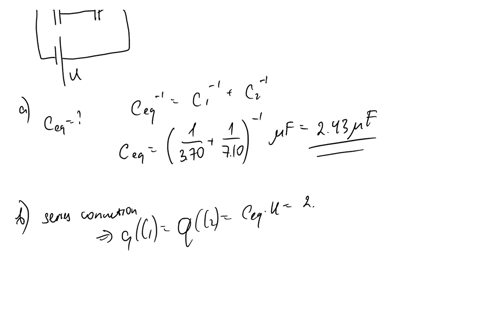 U
a) Ceq = ? Ceq⁻¹ = C₁⁻¹ + C₂⁻¹
Ceq = (1/3.70 + 1/7.10)⁻¹ μF = 2.43 μF
b) series connection
⇒ q(C₁) = q(C₂) = Ceq · U = 2.